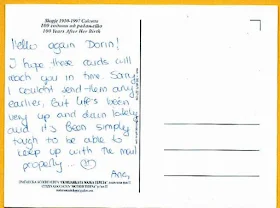 Skopje 1910-1997 Calcutta
100 Years After Her Birth
Hello again Dorin!
I hope these cards will
reach you in time. Sorry
I couldn't send them any
earlier. But life's been
very up and down lately
and it's been simply
tough to be able to
keep up with the mail
properly...
Ana